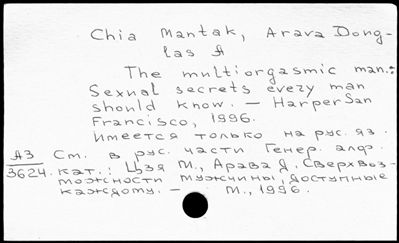 Chia Mantak, Arava Doug-
las A
The multiorgasmic man.:
Sexual secrets every man
should know. — HarperSan
Francisco, 1996.
Имеется только на рус. яз.
А3 См. в рус. части Генер. алф.
3624. кат.: Цзя М., Арава Д. Сверхвоз-
можности мужчины, доступные
каждому. — М., 1996.